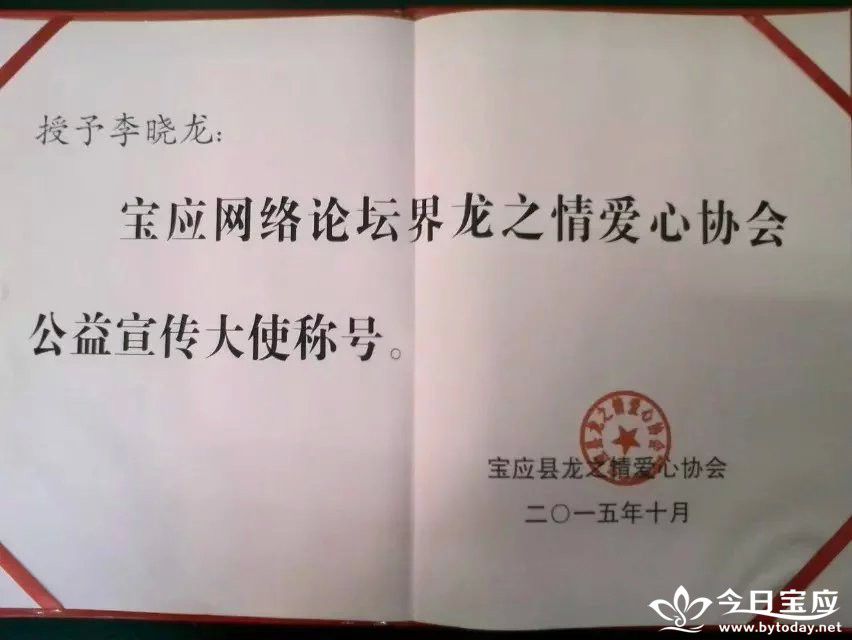 授予李晓龙：
宝应网络论坛界龙之情爱心协会
公益宣传大使称号。
宝应县龙之情爱心协会
宝应县龙之情爱心协会
二〇一五年十月
今日宝应
www.bytoday.net